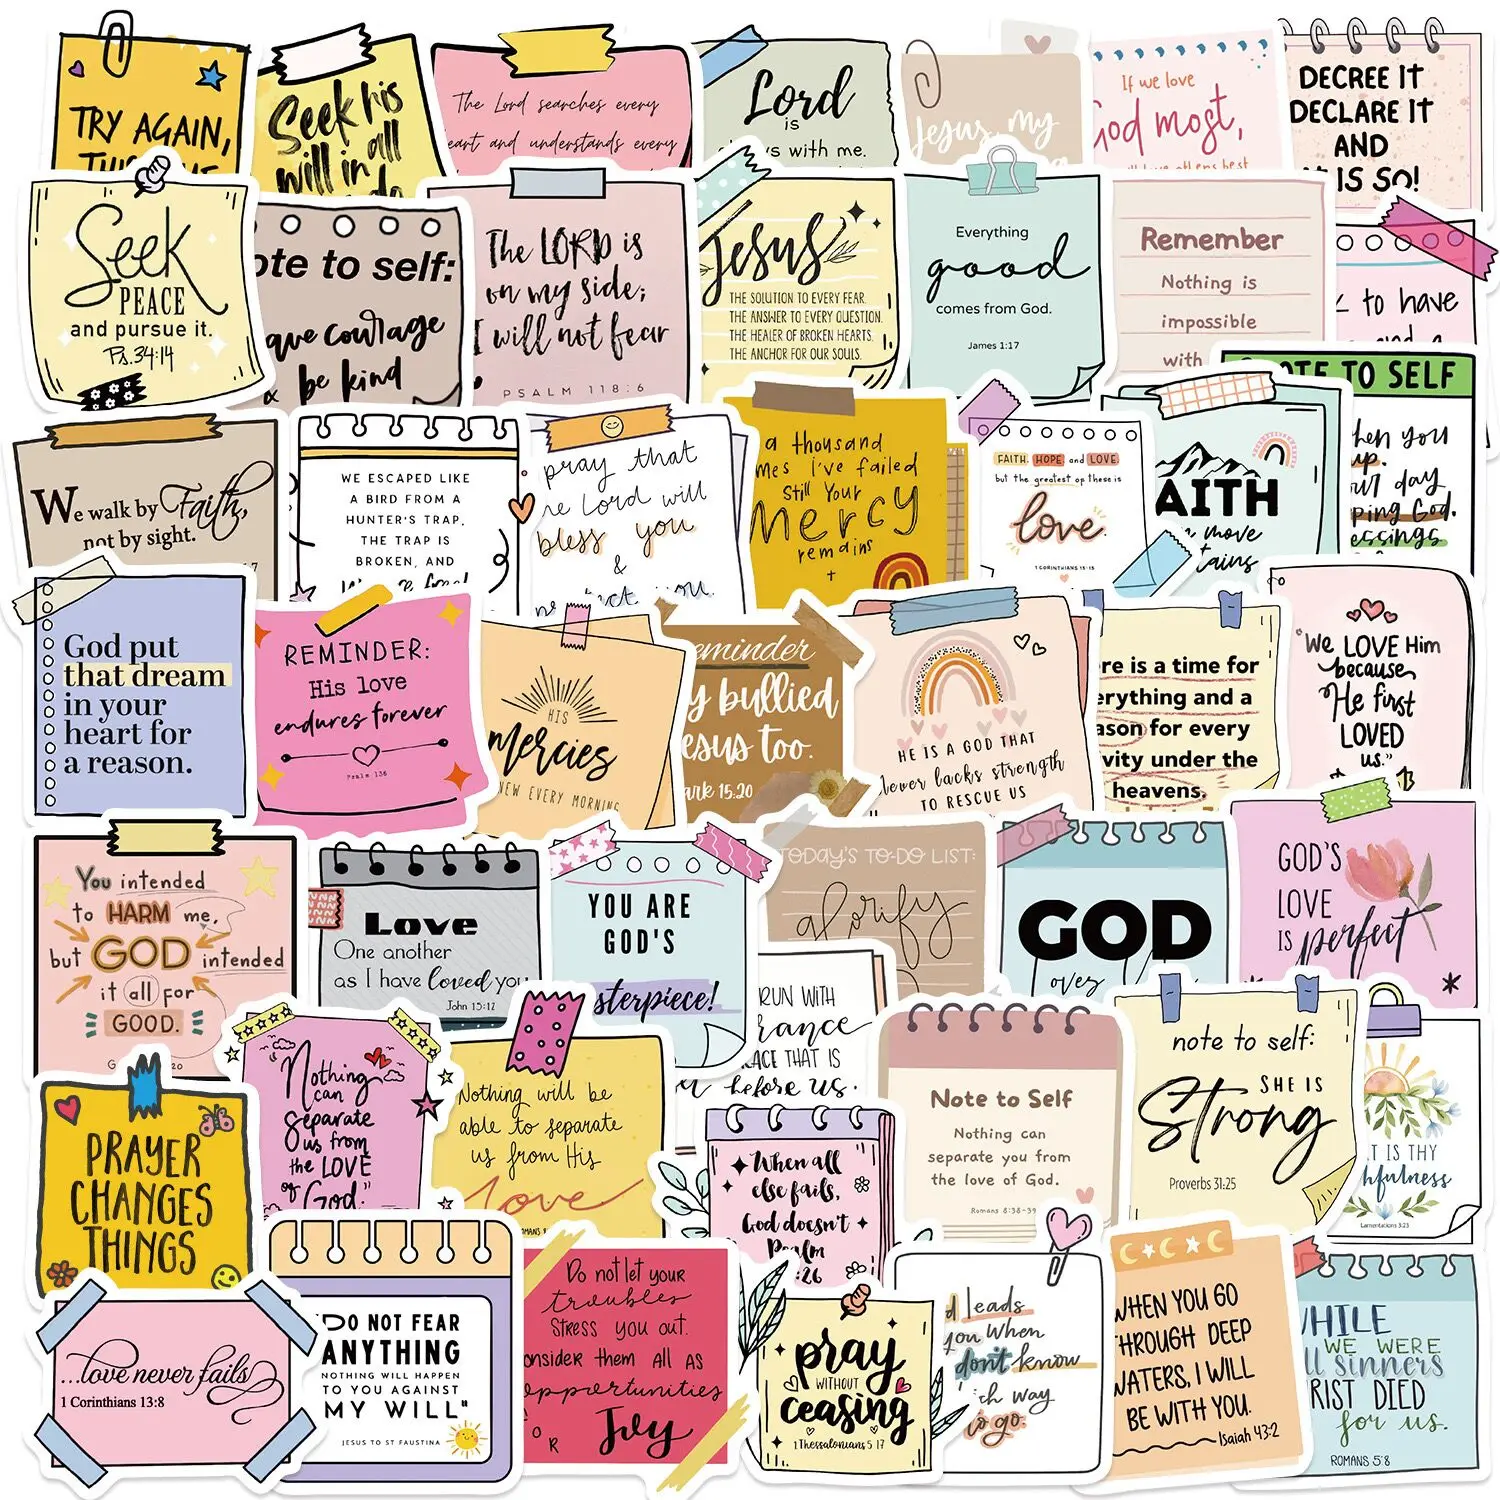 TRY AGAIN,
Seek his
will in all
The Lord searches every
and understands every
Lord
is
with me.
Jesus, my
If we love
God most,
DECREE IT
DECLARE IT
AND
IS SO!
Seek
PEACE
and pursue it.
Ps. 34:14
ote to self:
ave courage
& be kind
The LORD is
on my side;
I will not fear
PSALM 118:6
Jesus
THE SOLUTION TO EVERY FEAR.
THE ANSWER TO EVERY QUESTION.
THE HEALER OF BROKEN HEARTS.
THE ANCHOR FOR OUR SOULS.
Everything
good
comes from God.
James 1:17
Remember
Nothing is
impossible
with
to have
OTE TO SELF
hen you
up.
day
ping God.
essings
We walk by Faith,
not by sight.
WE ESCAPED LIKE
A BIRD FROM A
HUNTER'S TRAP.
THE TRAP IS
BROKEN, AND
pray that
he Lord will
bless you
&
you.
a thousand
mes i've failed
Still Your
Mercy
remains
FAITH, HOPE and LOVE.
but the greatest of these is
love.
1 CORINTHIANS 13:13
AITH
move
tains
God put
that dream
in your
heart for
a reason.
REMINDER:
His love
endures forever
Psalm 136
HIS
Mercies
NEW EVERY MORNING
eminder
y bullied
esus too.
ark 15:20
HE IS A GOD THAT
never lacks strength
TO RESCUE US
re is a time for
erything and a
ason for every
vity under the
heavens.
"We LOVE Him
because
He first
LOVED
us."
You intended
to HARM me,
but GOD intended
it all for
GOOD.
Love
One another
as I have loved you
John 15:12
YOU ARE
GOD'S
sterpiece!
TODAY'S TO-DO LIST:
glorify
GOD
over
GOD'S
LOVE
IS perfect
"Nothing
can
separate
us from
the LOVE
of God."
RUN WITH
rance
ACE THAT IS
before us.
Nothing will be
able to separate
us from His
love
Note to Self
Nothing can
separate you from
the love of God.
Romans 8:38-39
note to self:
SHE IS
Strong
Proverbs 31:25
T IS THY
hfulness
Lamentations 3:23
PRAYER
CHANGES
THINGS
When all
else fails,
God doesn't
Psalm
:26
...love never fails
1 Corinthians 13:8
"DO NOT FEAR
ANYTHING
NOTHING WILL HAPPEN
TO YOU AGAINST
MY WILL"
JESUS TO ST FAUSTINA
Do not let your
troubles
STRESS you out.
onsider them All AS
opportunities
OR
Joy
pray
WITHOUT
ceasing
1 Thessalonians 5:17
d leads
you when
don't know
ch way
to go.
WHEN YOU GO
THROUGH DEEP
WATERS, I WILL
BE WITH YOU.
Isaiah 43:2
WHILE
WE WERE
ll sinners
RIST DIED
for us.
ROMANS 5:8